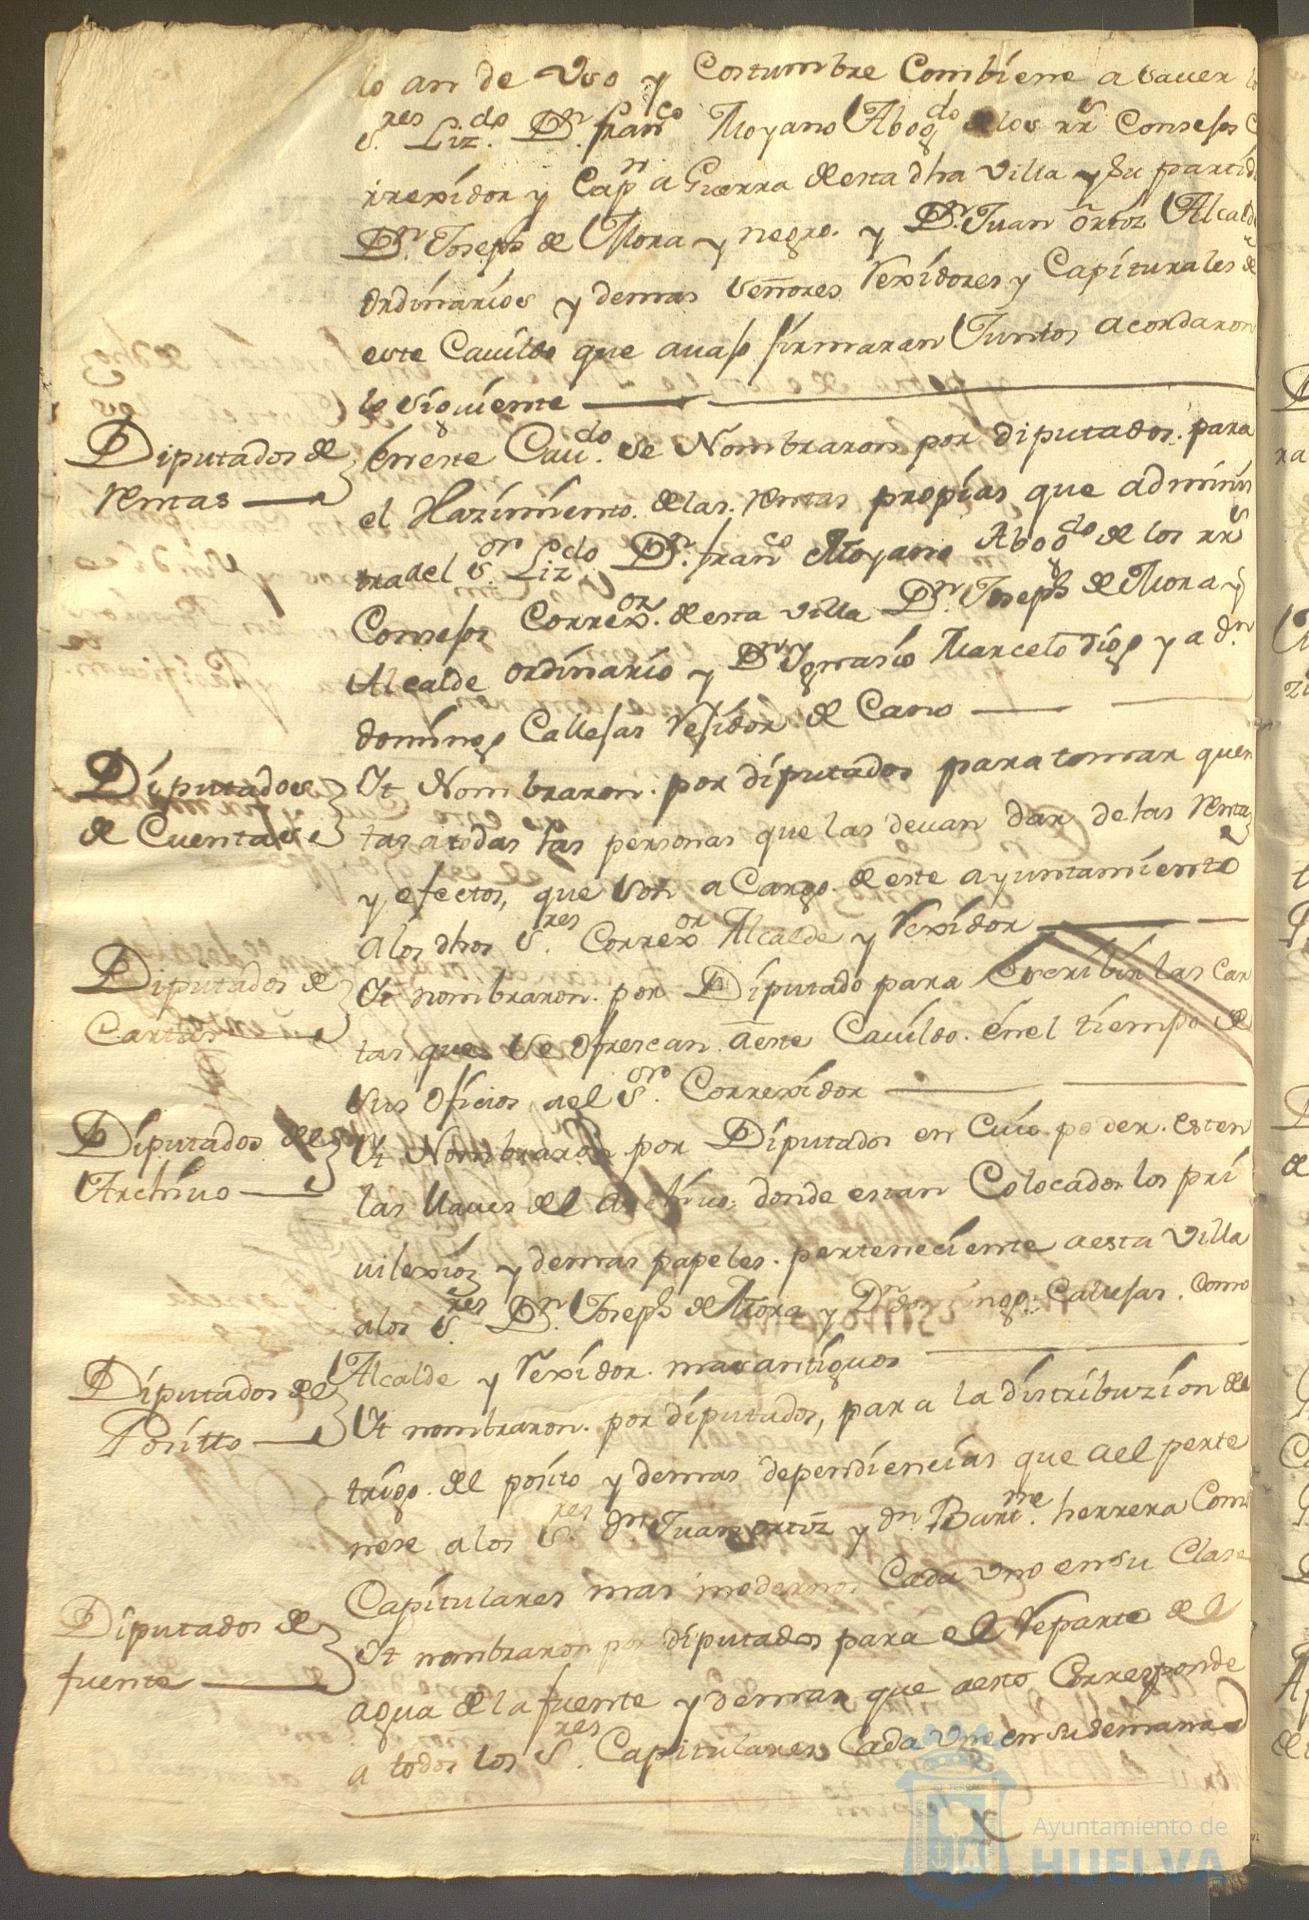 lo an de Uso y Costumbre Combiene a saver
S.res Liz.do D.n fran.co Moyano Abog.do de los rr.s Consejos
rrexidor y Cap.n a Guerra de esta dha villa y su partid
D.n Joseph de Mora y negro. y D.n Juan ortiz Alcald
ordinarios y demas señores Rexidores y Capiturales de
este Cauildo que auajo firmaran Juntos acordaron
lo siguiente
Diputados de
Rentas
En este Cau.do se Nombraron por diputados para
el Hazimiento de las Rentas propias que adminis
tra del S.or Liz.do D.n fran.co Moyano Abog.do de los rr.s
Consejos Correx.or de esta villa D.n Joseph de Mora y
Alcalde ordinario y D.n Ygnasio Marcelo diog y a d.n
doming Callejas Rejidor de Cano
Diputados
de Cuentas
Yt Nombraron por diputados para tomar quen
tas a todas las personas que las deuan dar de las Renta
y efectos, que son a Cargo de este ayuntamiento
a los dhos S.res Correx.or Alcalde y Rexidor
Diputados de
Cartas
Yt nombraron por Diputado para Escribir las Car
tas que se ofrescan a este Cauildo en el tiempo de
sus oficios a el S.or Correxidor
Diputados de el
Archiuo
Yt Nombraron por Diputados en Cuio poder esten
las llaues de el Archiuo donde estan Colocados los pri
uilexios y demas papeles perteneciente a esta Villa
a los S.res D.n Joseph de Mora y D.n doming Callejas Como
Alcalde y Rexidor mas antiguos
Diputados de el
Positto
Yt nombraron por diputados, para la distribuzion de el
trigo de el posito y demas dependiencias que a el perte
nese a los S.res d.n Juan ortiz y d.n Bart.me herrera Com
Capitulares mas modernos Cada Uno en su Clase
Diputados de
fuente
Yt nombraron por diputados para el Reparto de el
agua de la fuente y demas que a esto Corresponde
a todos los S.res Capitulares Cada Uno en su semana
Ayuntamiento de
HUELVA